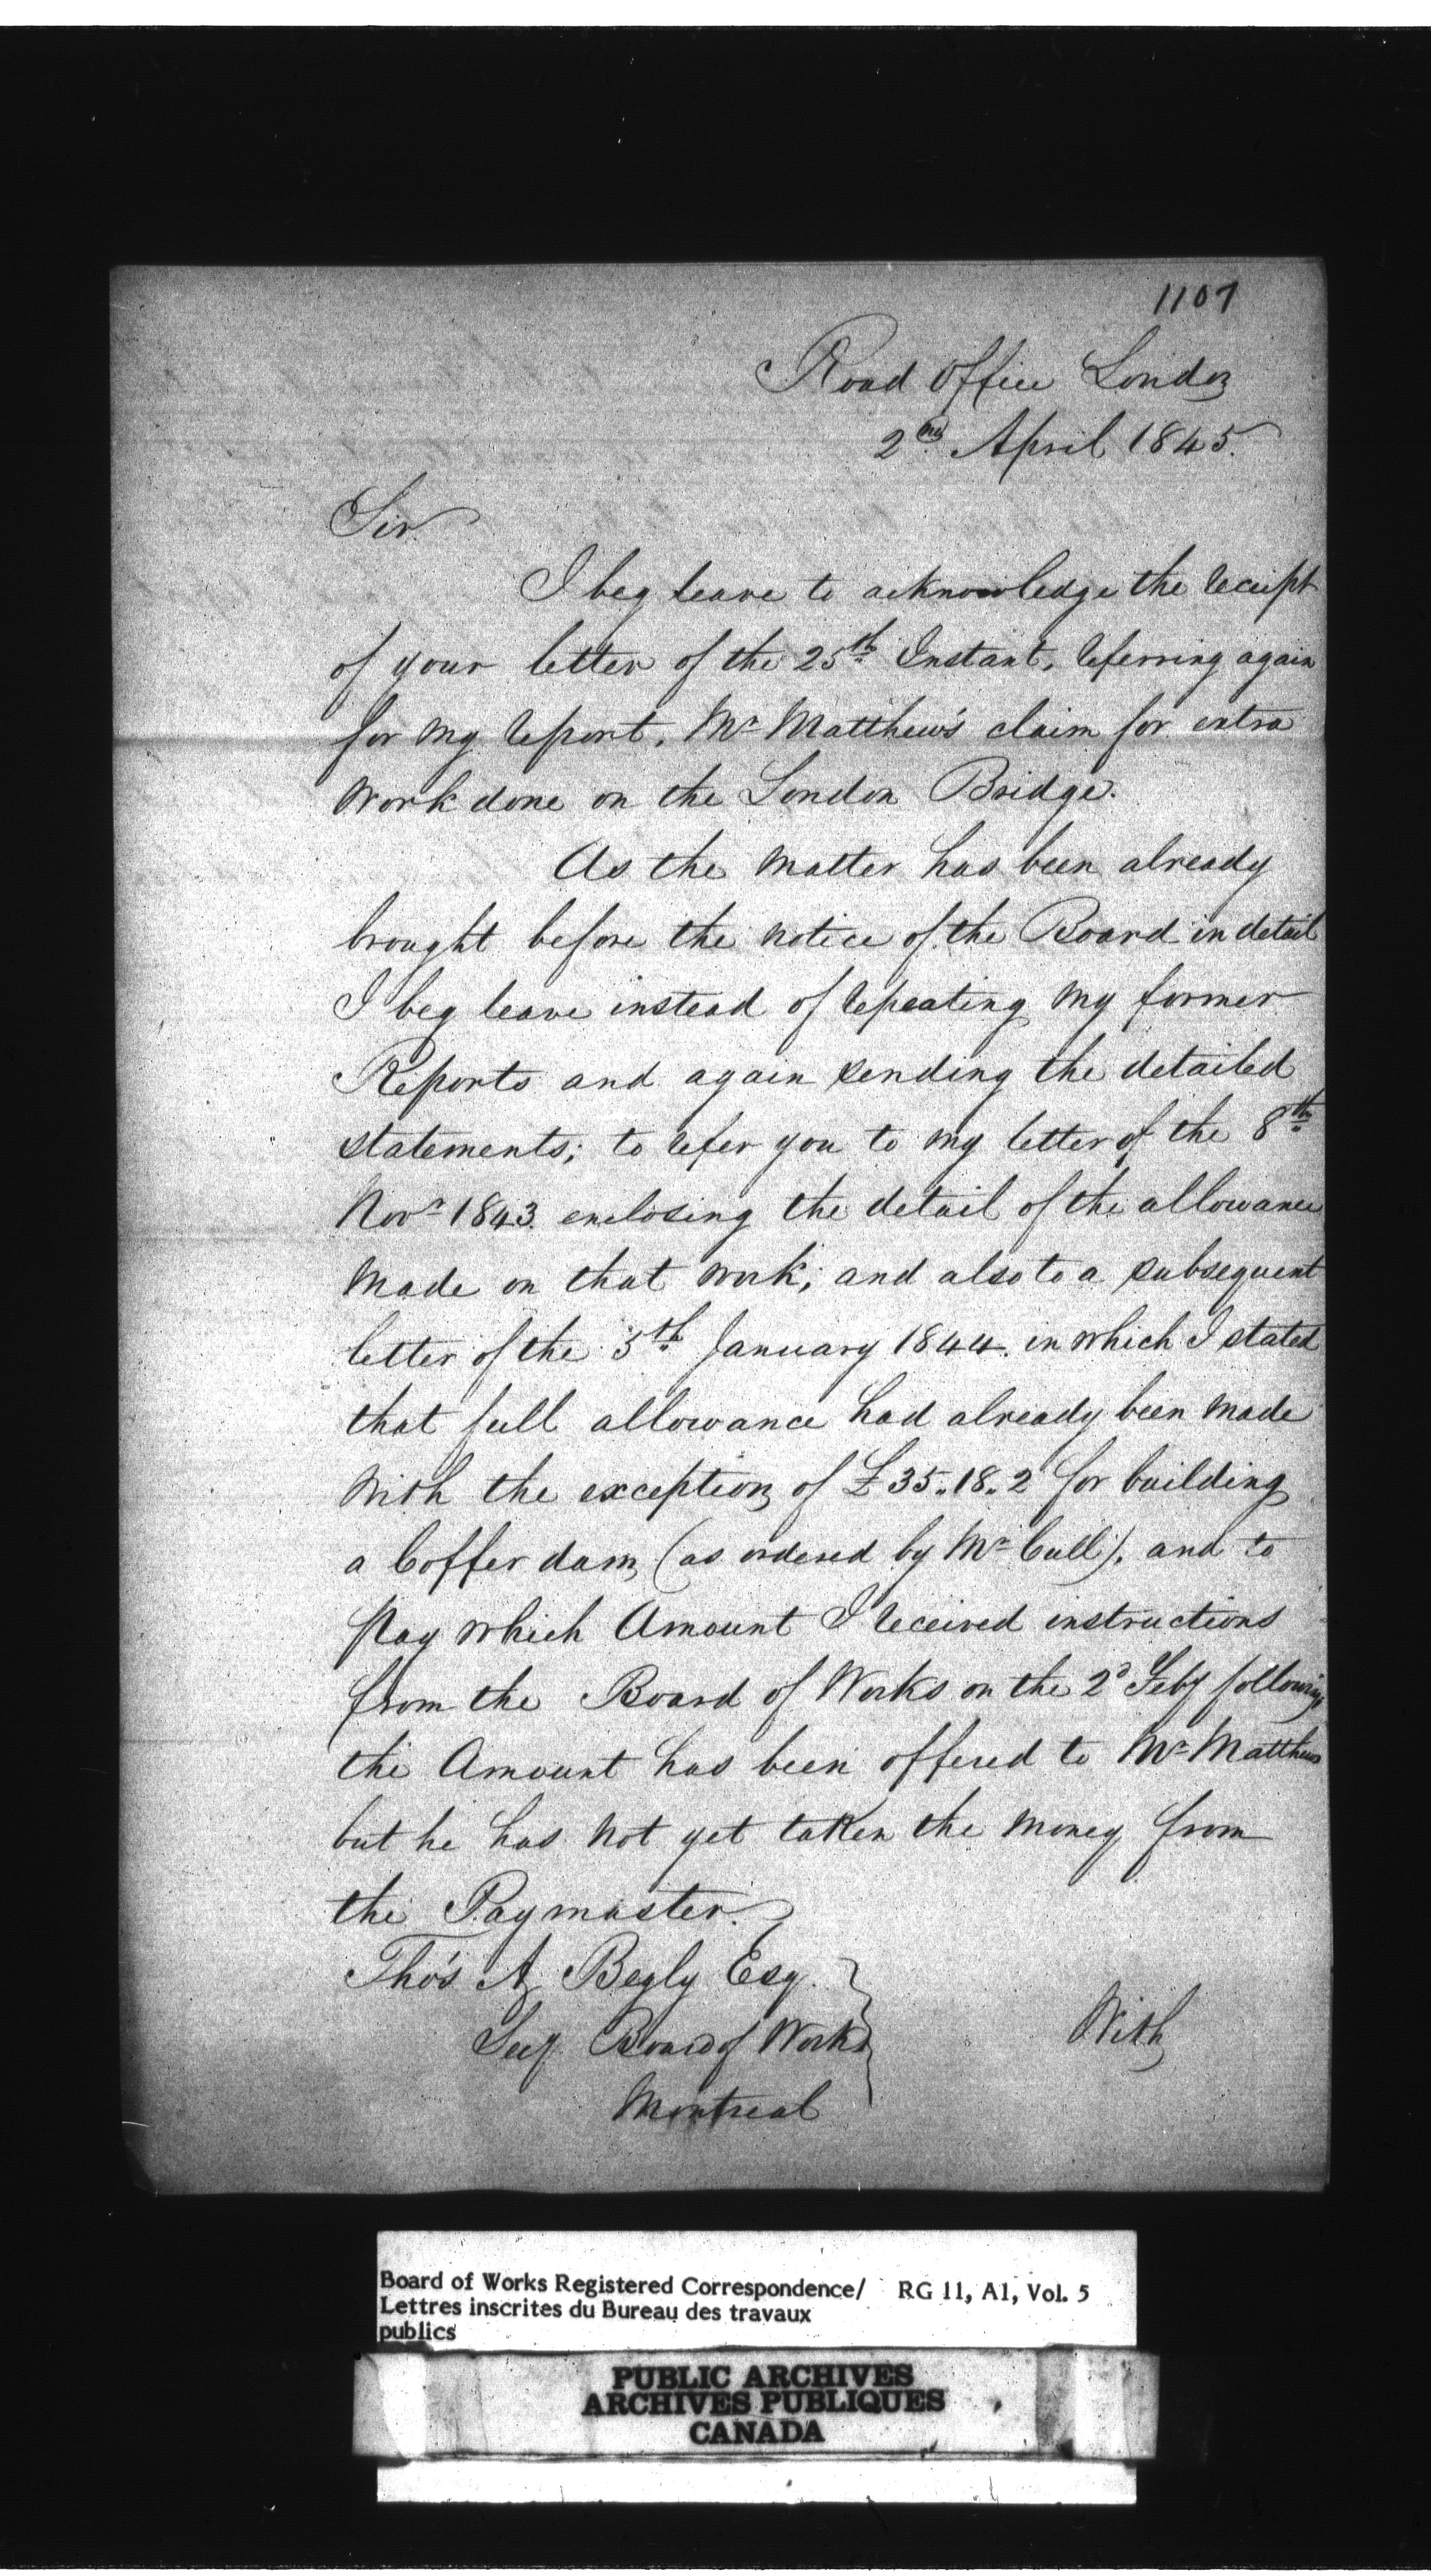 1107
Road Office London
2nd April 1845.
Sir
I beg leave to acknowledge the receipt
of your letter of the 25th Instant, referring again
for my report, Mr Matthew's claim for extra
work done on the London Bridge.
As the matter has been already
brought before the notice of the Board in detail
I beg leave instead of repeating my former
Reports and again sending the detailed
statements; to refer you to my letter of the 8th
Novr 1843 enclosing the detail of the allowance
made on that work; and also to a subsequent
letter of the 5th January 1844. in which I stated
that full allowance had already been made
with the exception of £35.18.2 for building
a Coffer dam, (as ordered by Mr Cull), and to
pay which Amount I received instructions
from the Board of Works on the 2d Feby following
the Amount has been offered to Mr Matthews
but he has not yet taken the money from
the Paymaster.
Tho's A Begly Esq.
Secy Board of Works
With
Montreal
Board of Works Registered Correspondence/ RG 11, A1, Vol. 5
Lettres inscrites du Bureau des travaux
publics
PUBLIC ARCHIVES
ARCHIVES PUBLIQUES
CANADA